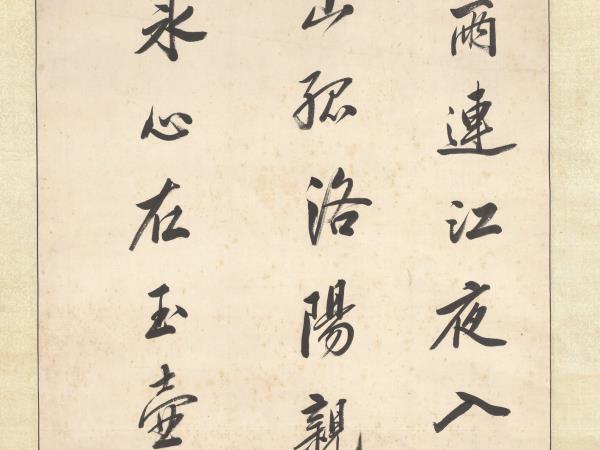 雨連江夜入
山孤洛陽親
氷心在玉壺